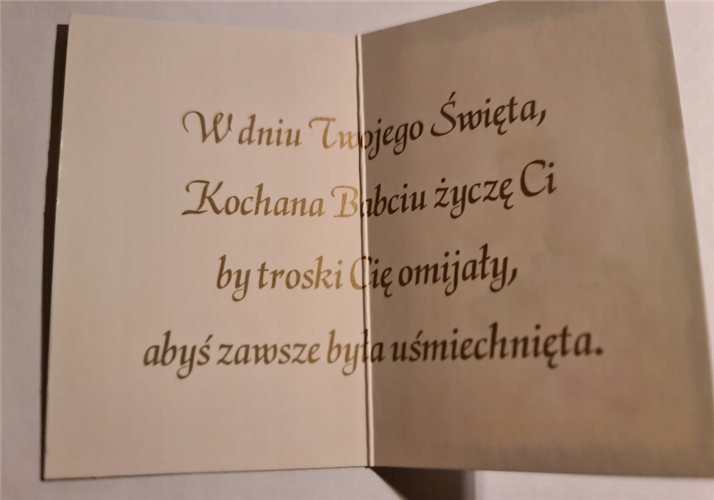 W dniu Twojego Święta,
Kochana Babciu życzę Ci
by troski Cię omijały,
abyś zawsze była uśmiechnięta.